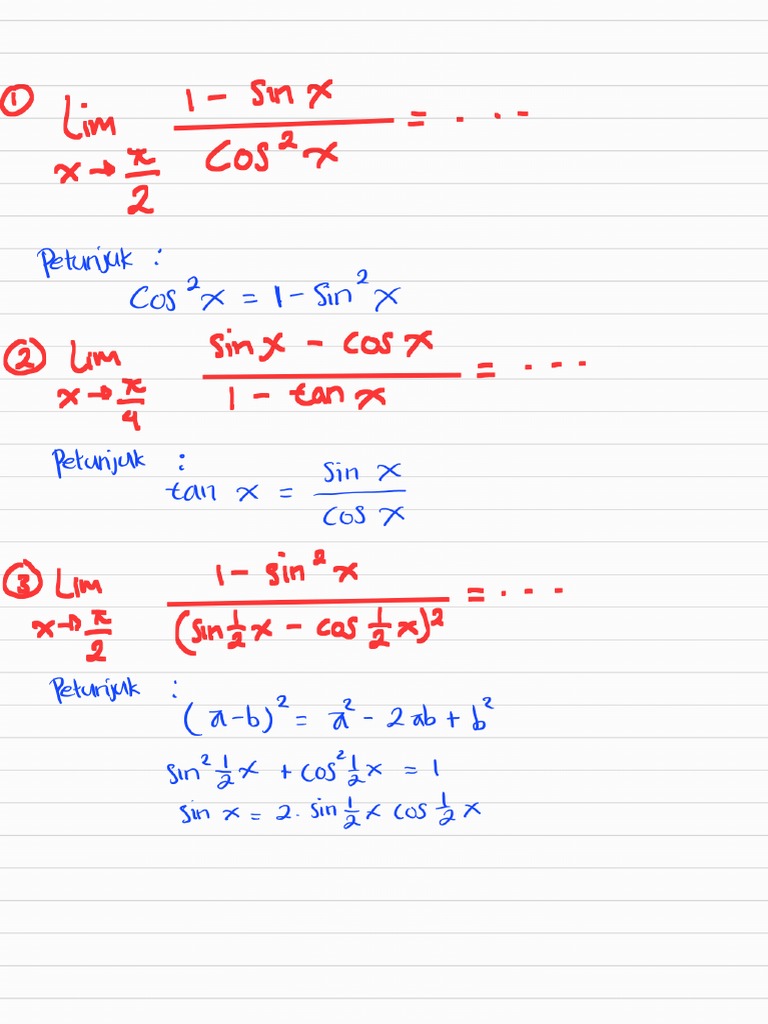 ① Lim x → π/2 (1 - sin x)/(cos² x) = . . .
Petunjuk :
Cos² x = 1 - sin² x
② Lim x → π/4 (sin x - cos x)/(1 - tan x) = . . .
Petunjuk :
tan x = sin x / cos x
③ Lim x → π/2 (1 - sin² x)/(sin ½ x - cos ½ x)² = . . .
Petunjuk :
(a - b)² = a² - 2ab + b²
sin² ½ x + cos² ½ x = 1
sin x = 2 . sin ½ x cos ½ x